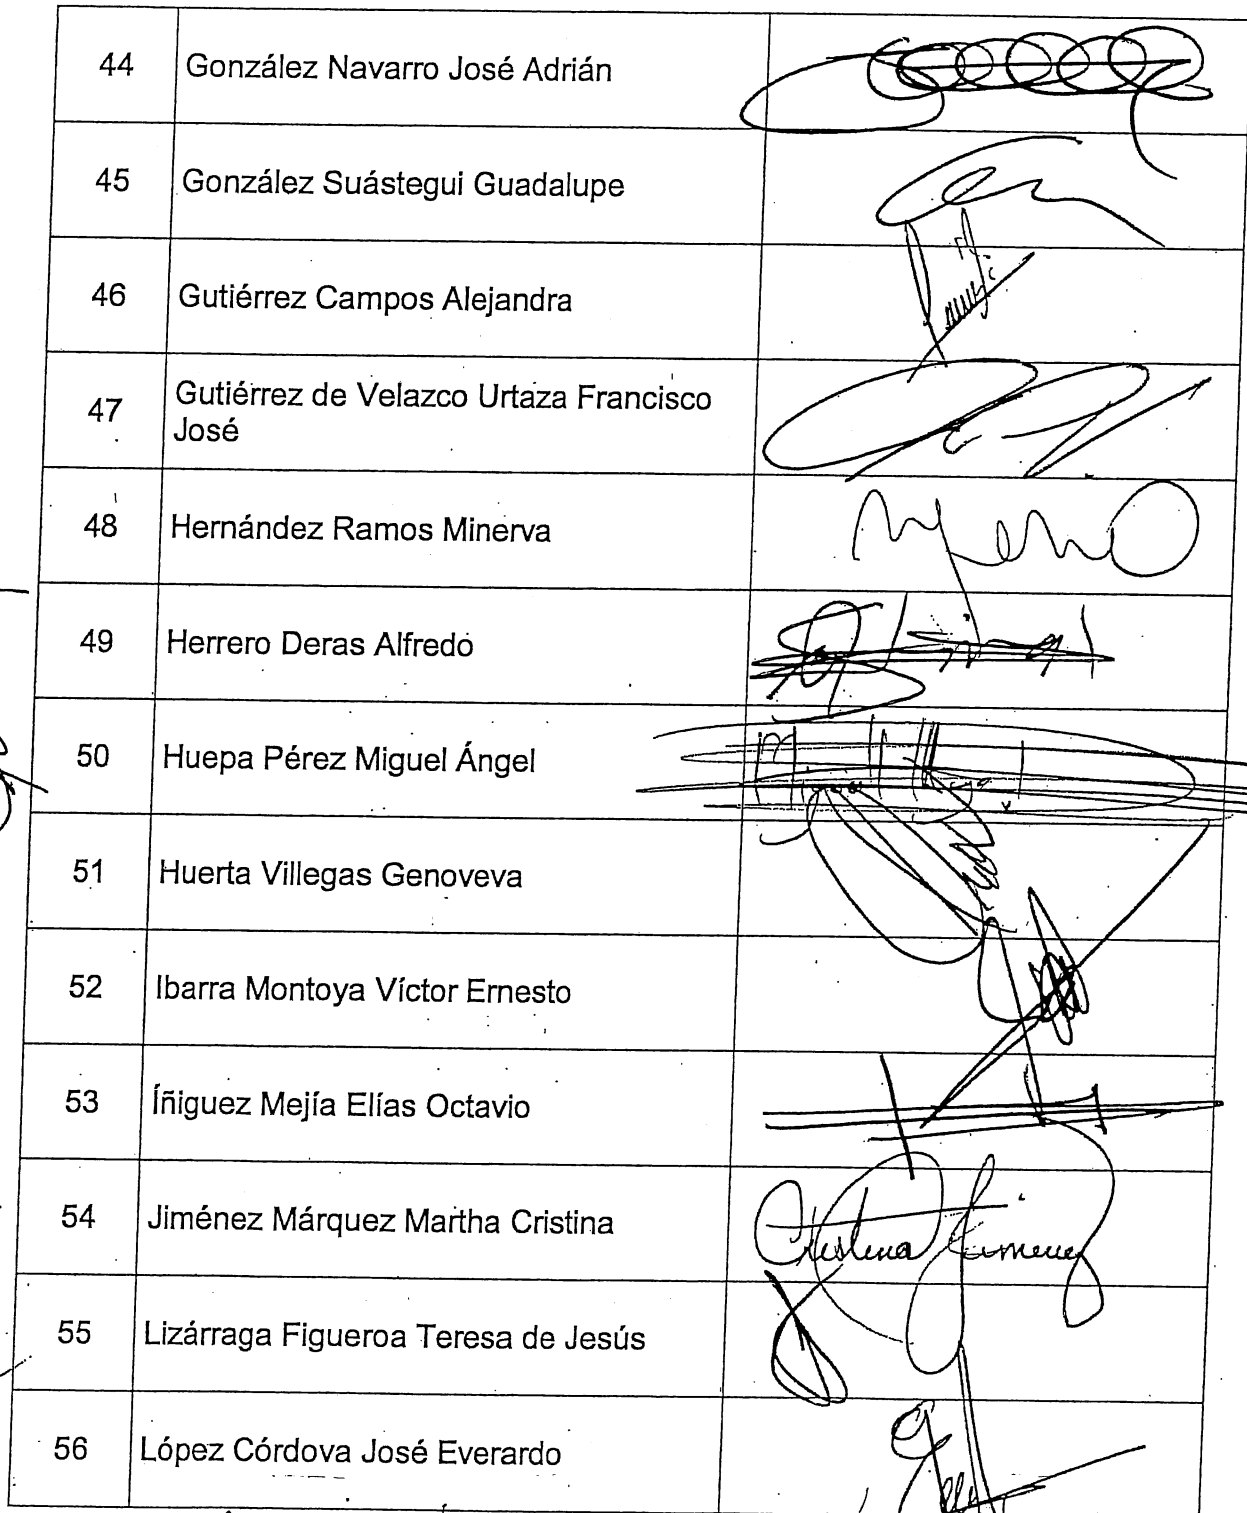 44 González Navarro José Adrián
45 González Suástegui Guadalupe
46 Gutiérrez Campos Alejandra
47 Gutiérrez de Velazco Urtaza Francisco
José
48 Hernández Ramos Minerva
49 Herrero Deras Alfredo
50 Huepa Pérez Miguel Ángel
51 Huerta Villegas Genoveva
52 Ibarra Montoya Víctor Ernesto
53 Íñiguez Mejía Elías Octavio
54 Jiménez Márquez Martha Cristina Cristina Jimenez
55 Lizárraga Figueroa Teresa de Jesús
56 López Córdova José Everardo